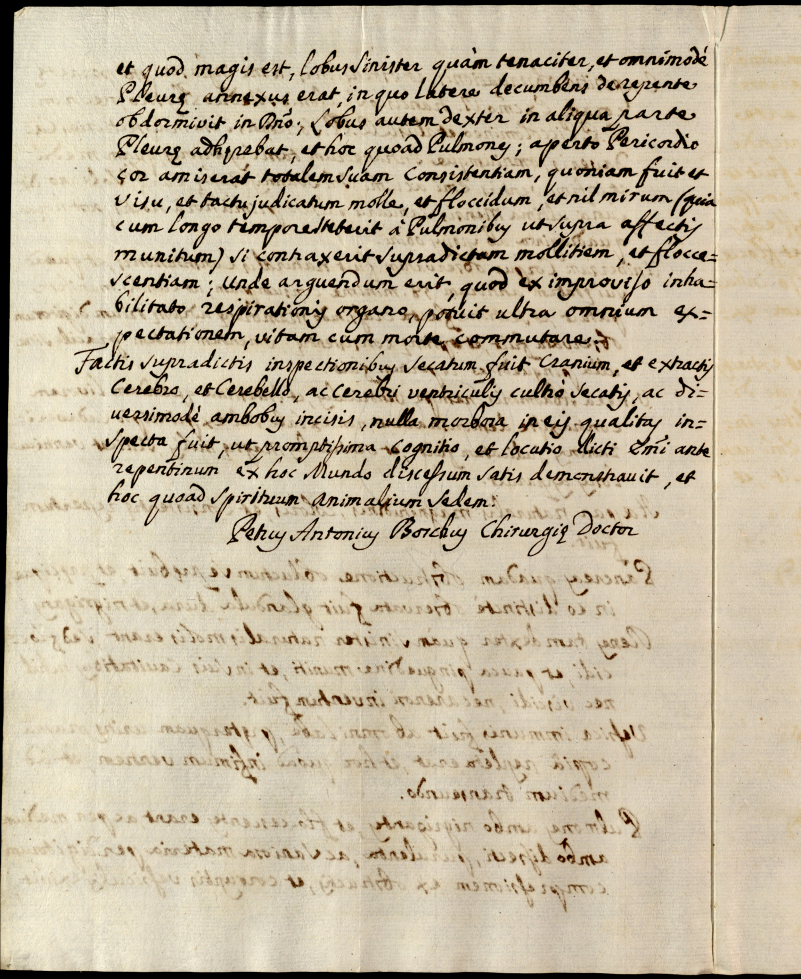 et quod magis est, lobus sinister quàm tenaciter, et omnimodé
Pleurę annexus erat, in quo latere decumbens derepente
obdormivit in Dno; Lobus autem dexter in aliqua parte
Pleurę adhęrebat, et hoc quoad Pulmones; aperto Pericordio
cor amiserat totalem suam Consistentiam, quoniam fuit et
visu, et tactu judicatum molle, et floccidum, et nil mirum (quia
cum longo tempore steterit à Pulmonibus ut supra affectis
munitum) si contraxerit supradictam mollitiem, et flocce=
scentiam; unde arguendum erit quod ex improviso inha=
bilitato respirationis organo, potuit ultra omnium ex=
pectationem, vitam cum morte commutare.
Factis supradictis inspectionibus secatum fuit Cranium, et extractis
Cerebro, et Cerebello, ac Cerebri ventriculis cultro secatis, ac di=
versimodé ambobus incisis, nulla morbosa in eis qualitas in=
specta fuit, ut promptissima cognitio, et locutio dicti Emi ante
repentinum ex hoc Mundo discessum satis demonstravit, et
hoc quoad spirituum animalium sedem.
Petrus Antonius Borebus Chirurgię Doctor